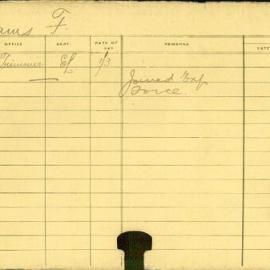 ams F.
OFFICE DEPT. RATE OF PAY REMARKS
Trimmer EL 1/3 Joined Exp
Force.